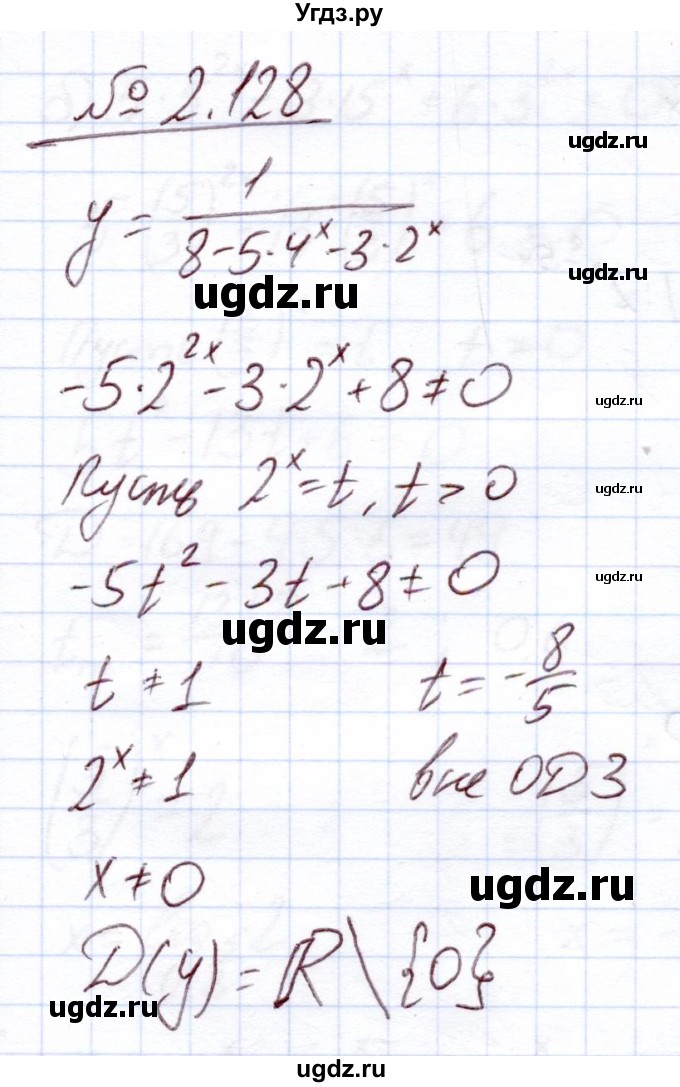 Угдз.ру
№ 2.128
ugdz.ru
y = 1/(8-5·4^x-3·2^x)
ugdz.ru
ugdz.ru
-5·2^{2x}-3·2^x+8≠0
ugdz.ru
Пусть 2^x=t, t>0
ugdz.ru
-5t^2-3t+8≠0
ugdz.ru
ugdz.ru
t≠1 t=-8/5
2^x≠1 вне ОДЗ
x≠0
ugdz.ru
D(y)=ℝ\{0}
ugdz.ru
ugdz.ru